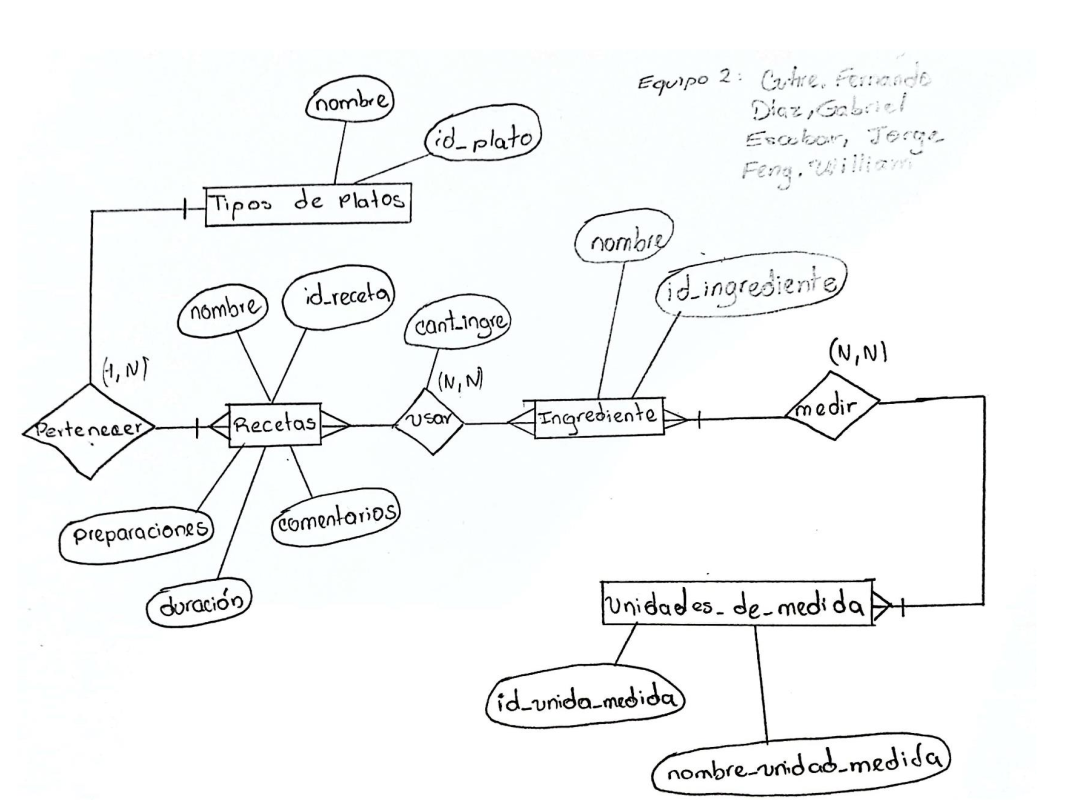 Equipo 2: Fernando
Díaz, Gabriel
Escobar, Jorge
Feng, William
nombre
id_plato
Tipos de Platos
nombre
id_ingrediente
nombre
id_receta
cant_ingre
(1, N)
(N, N)
(N, N)
Pertenecer
Recetas
usar
Ingrediente
medir
preparaciones
comentarios
duración
Unidades_de_medida
id_unida_medida
nombre_unidad_medida